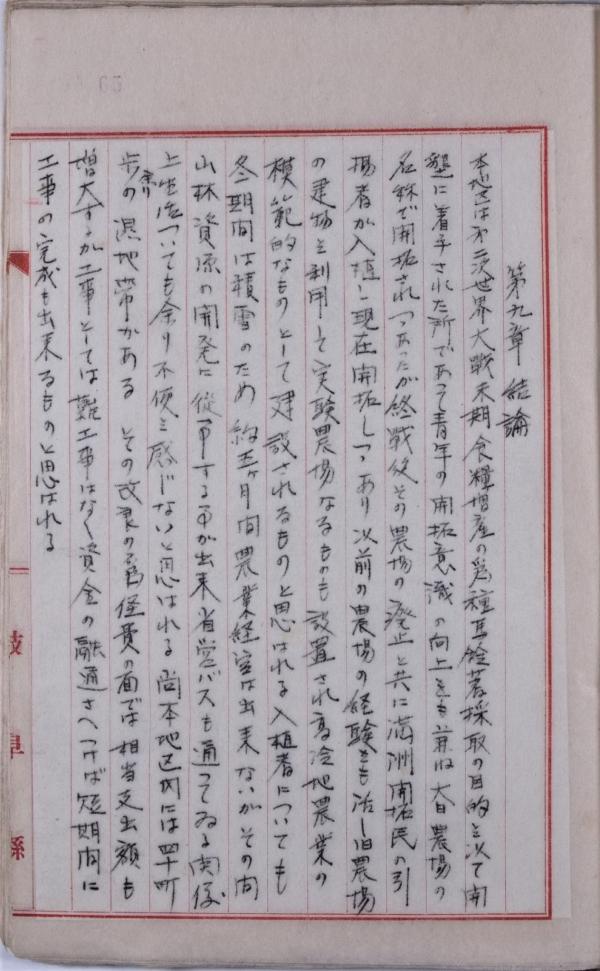 第九章 結論
本地区は第二次世界大戦末期食糧増産の為種馬鈴薯採取の目的を以て開
墾に着手された所であって青年の開拓意識の向上をも兼ね大日農場の
名称で開拓されつつあったが終戦後その農場の廃止と共に満洲開拓民の引
揚者が入植し現在開拓しつつあり以前の農場の経験をも活し旧農場
の建物を利用して実験農場なるものも設置され高冷地農業の
模範的なものとして建設されるものと思はれる入植者についても
冬期間は積雪のため約五ヶ月間農業経営は出来ないがその間
山林資源の開発に従事する事が出来省営バスも通ってゐる関係
上生活についても余り不便を感じないと思はれる尚本地区内には四十町
歩余りの湿地帯がある その改良の為経費の面では相当支出額も
増大するが工事としては難工事はなく資金の融通さへつけば短期間に
工事の完成も出来るものと思はれる
岐阜縣
65